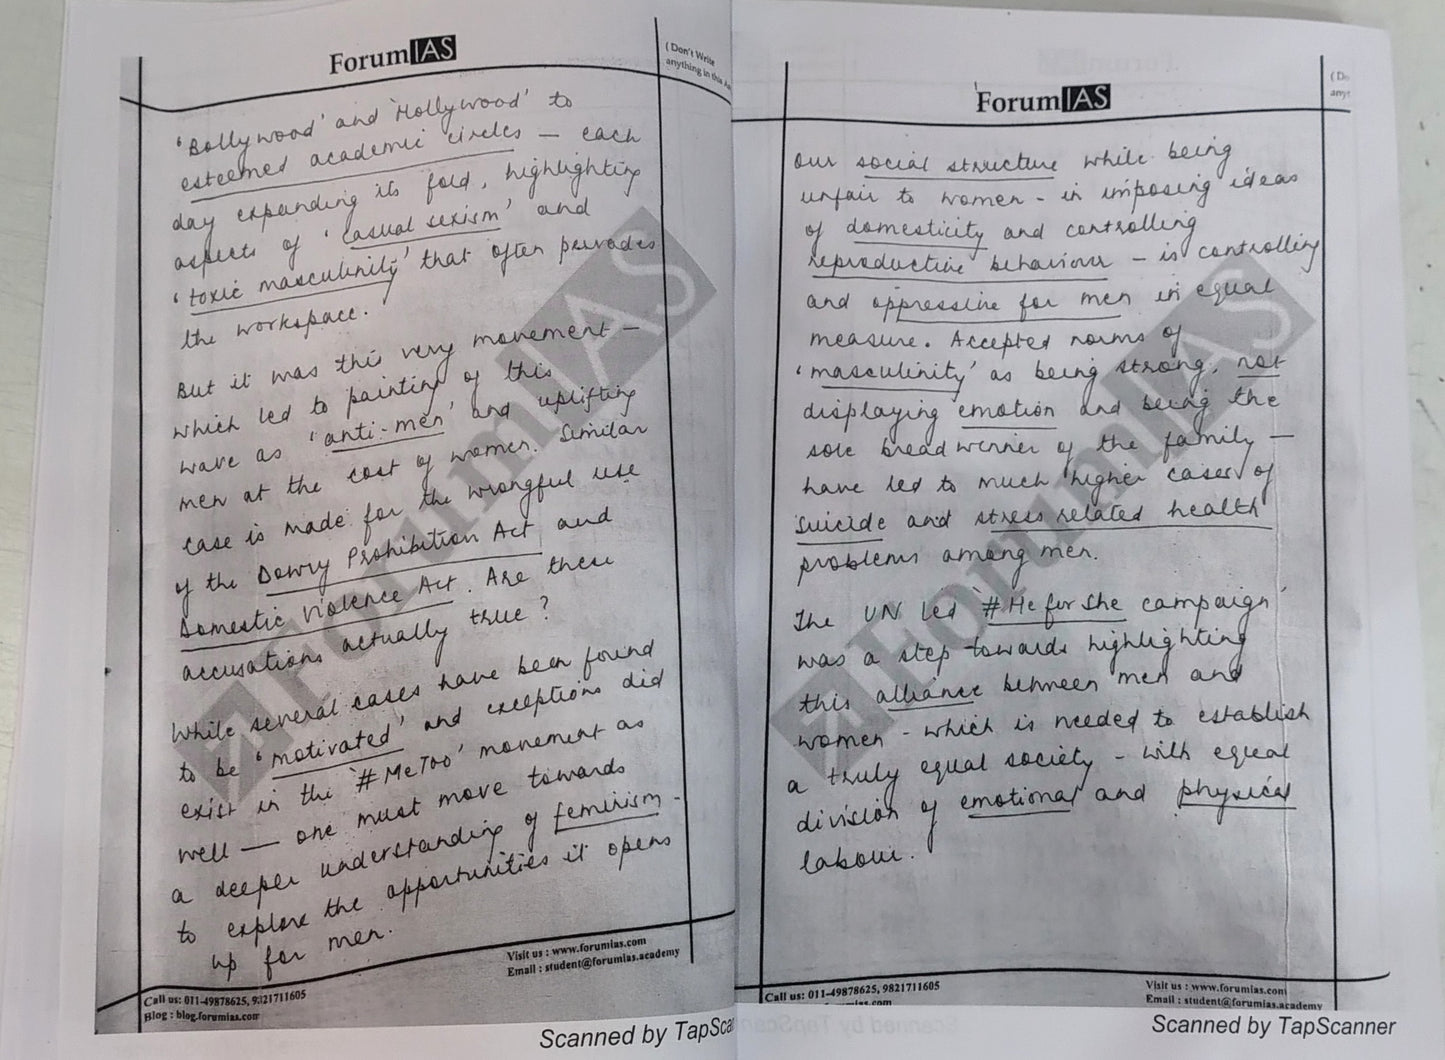 ForumIAS
(Don't Write
anything in this A
'Bollywood' and 'Hollywood' to
esteemed academic circles — each
day expanding its fold, highlighting
aspects of 'casual sexism' and
'toxic masculinity' that often pervades
the workspace.
But it was this very movement —
which led to painting of this
wave as 'anti-men' and uplifting
men at the cost of women. Similar
case is made for the wrongful use
of the Dowry Prohibition Act and
Domestic Violence Act. Are these
accusations actually true?
While several cases have been found
to be 'motivated' and exceptions did
exist in the '#MeToo' movement as
well — one must move towards
a deeper understanding of feminism -
to explore the opportunities it opens
up for men.
Visit us : www.forumias.com
Email : student@forumias.academy
Call us: 011-49878625, 9821711605
Blog : blog.forumias.com
Scanned by TapSca
ForumIAS
(Do
any
Our social structure while being
unfair to women - in imposing ideas
of domesticity and controlling
reproductive behaviour - is controlling
and oppressive for men in equal
measure. Accepted norms of
'masculinity' as being strong, not
displaying emotion and being the
sole breadwinner of the family —
have led to much higher cases of
suicide and stress related health
problems among men.
The UN led '#HeforShe campaign'
was a step towards highlighting
this alliance between men and
women - which is needed to establish
a truly equal society - with equal
division of emotional and physical
labour.
Call us: 011-49878625, 9821711605
Visit us : www.forumias.com
Email : student@forumias.academy
Scanned by TapScanner